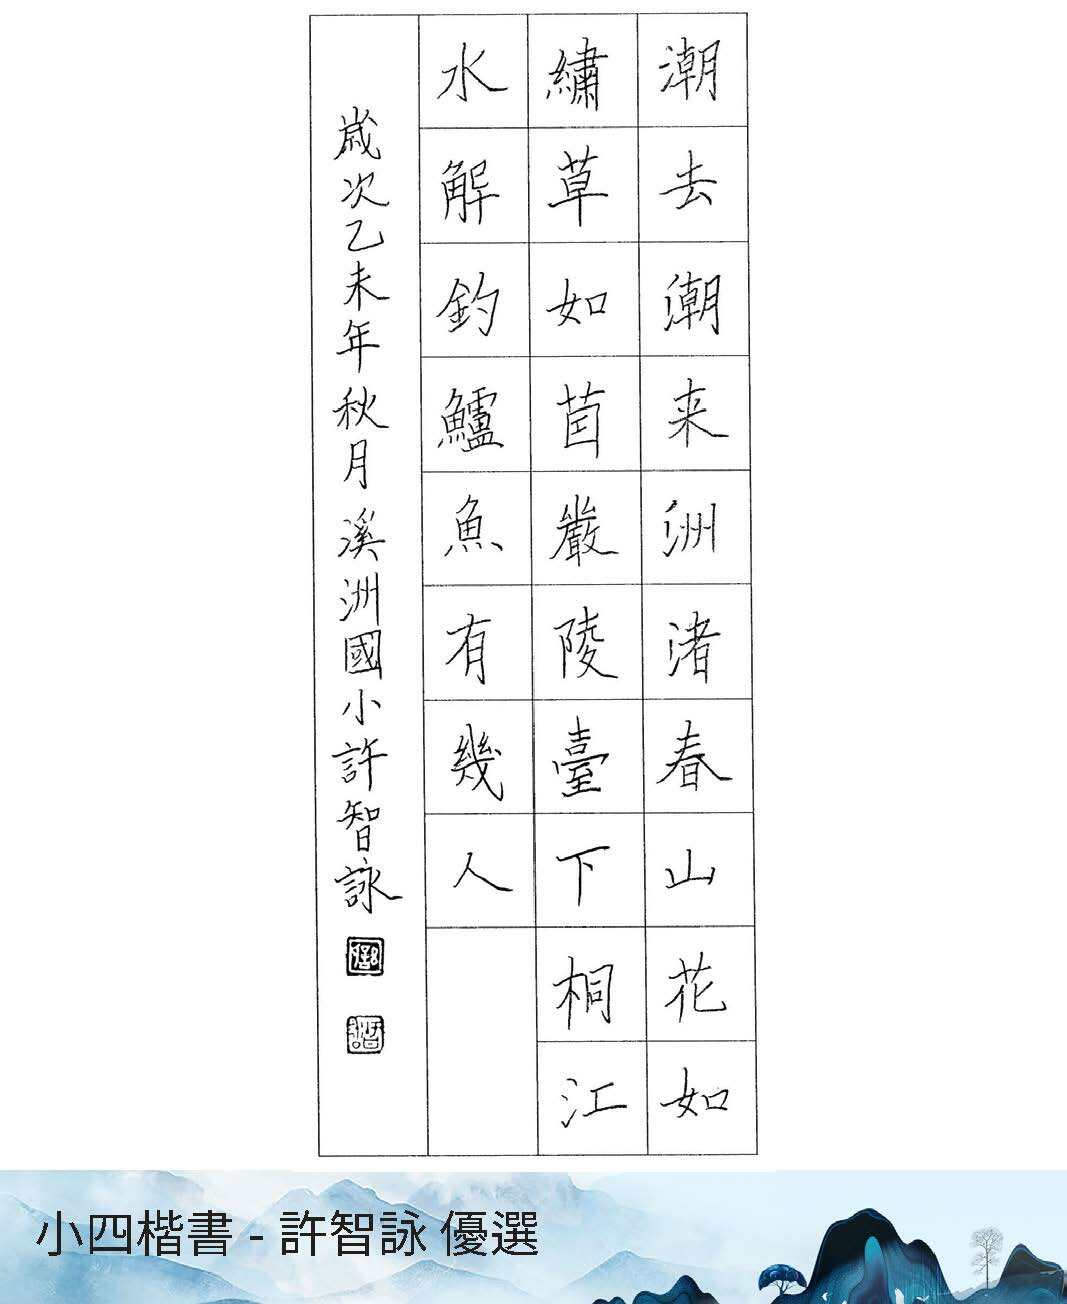 潮去潮来洲渚春山花如
繡草如茵嚴陵臺下桐江
水解釣鱸魚有幾人
歲次乙未年秋月溪洲國小許智詠
小四楷書 - 許智詠 優選